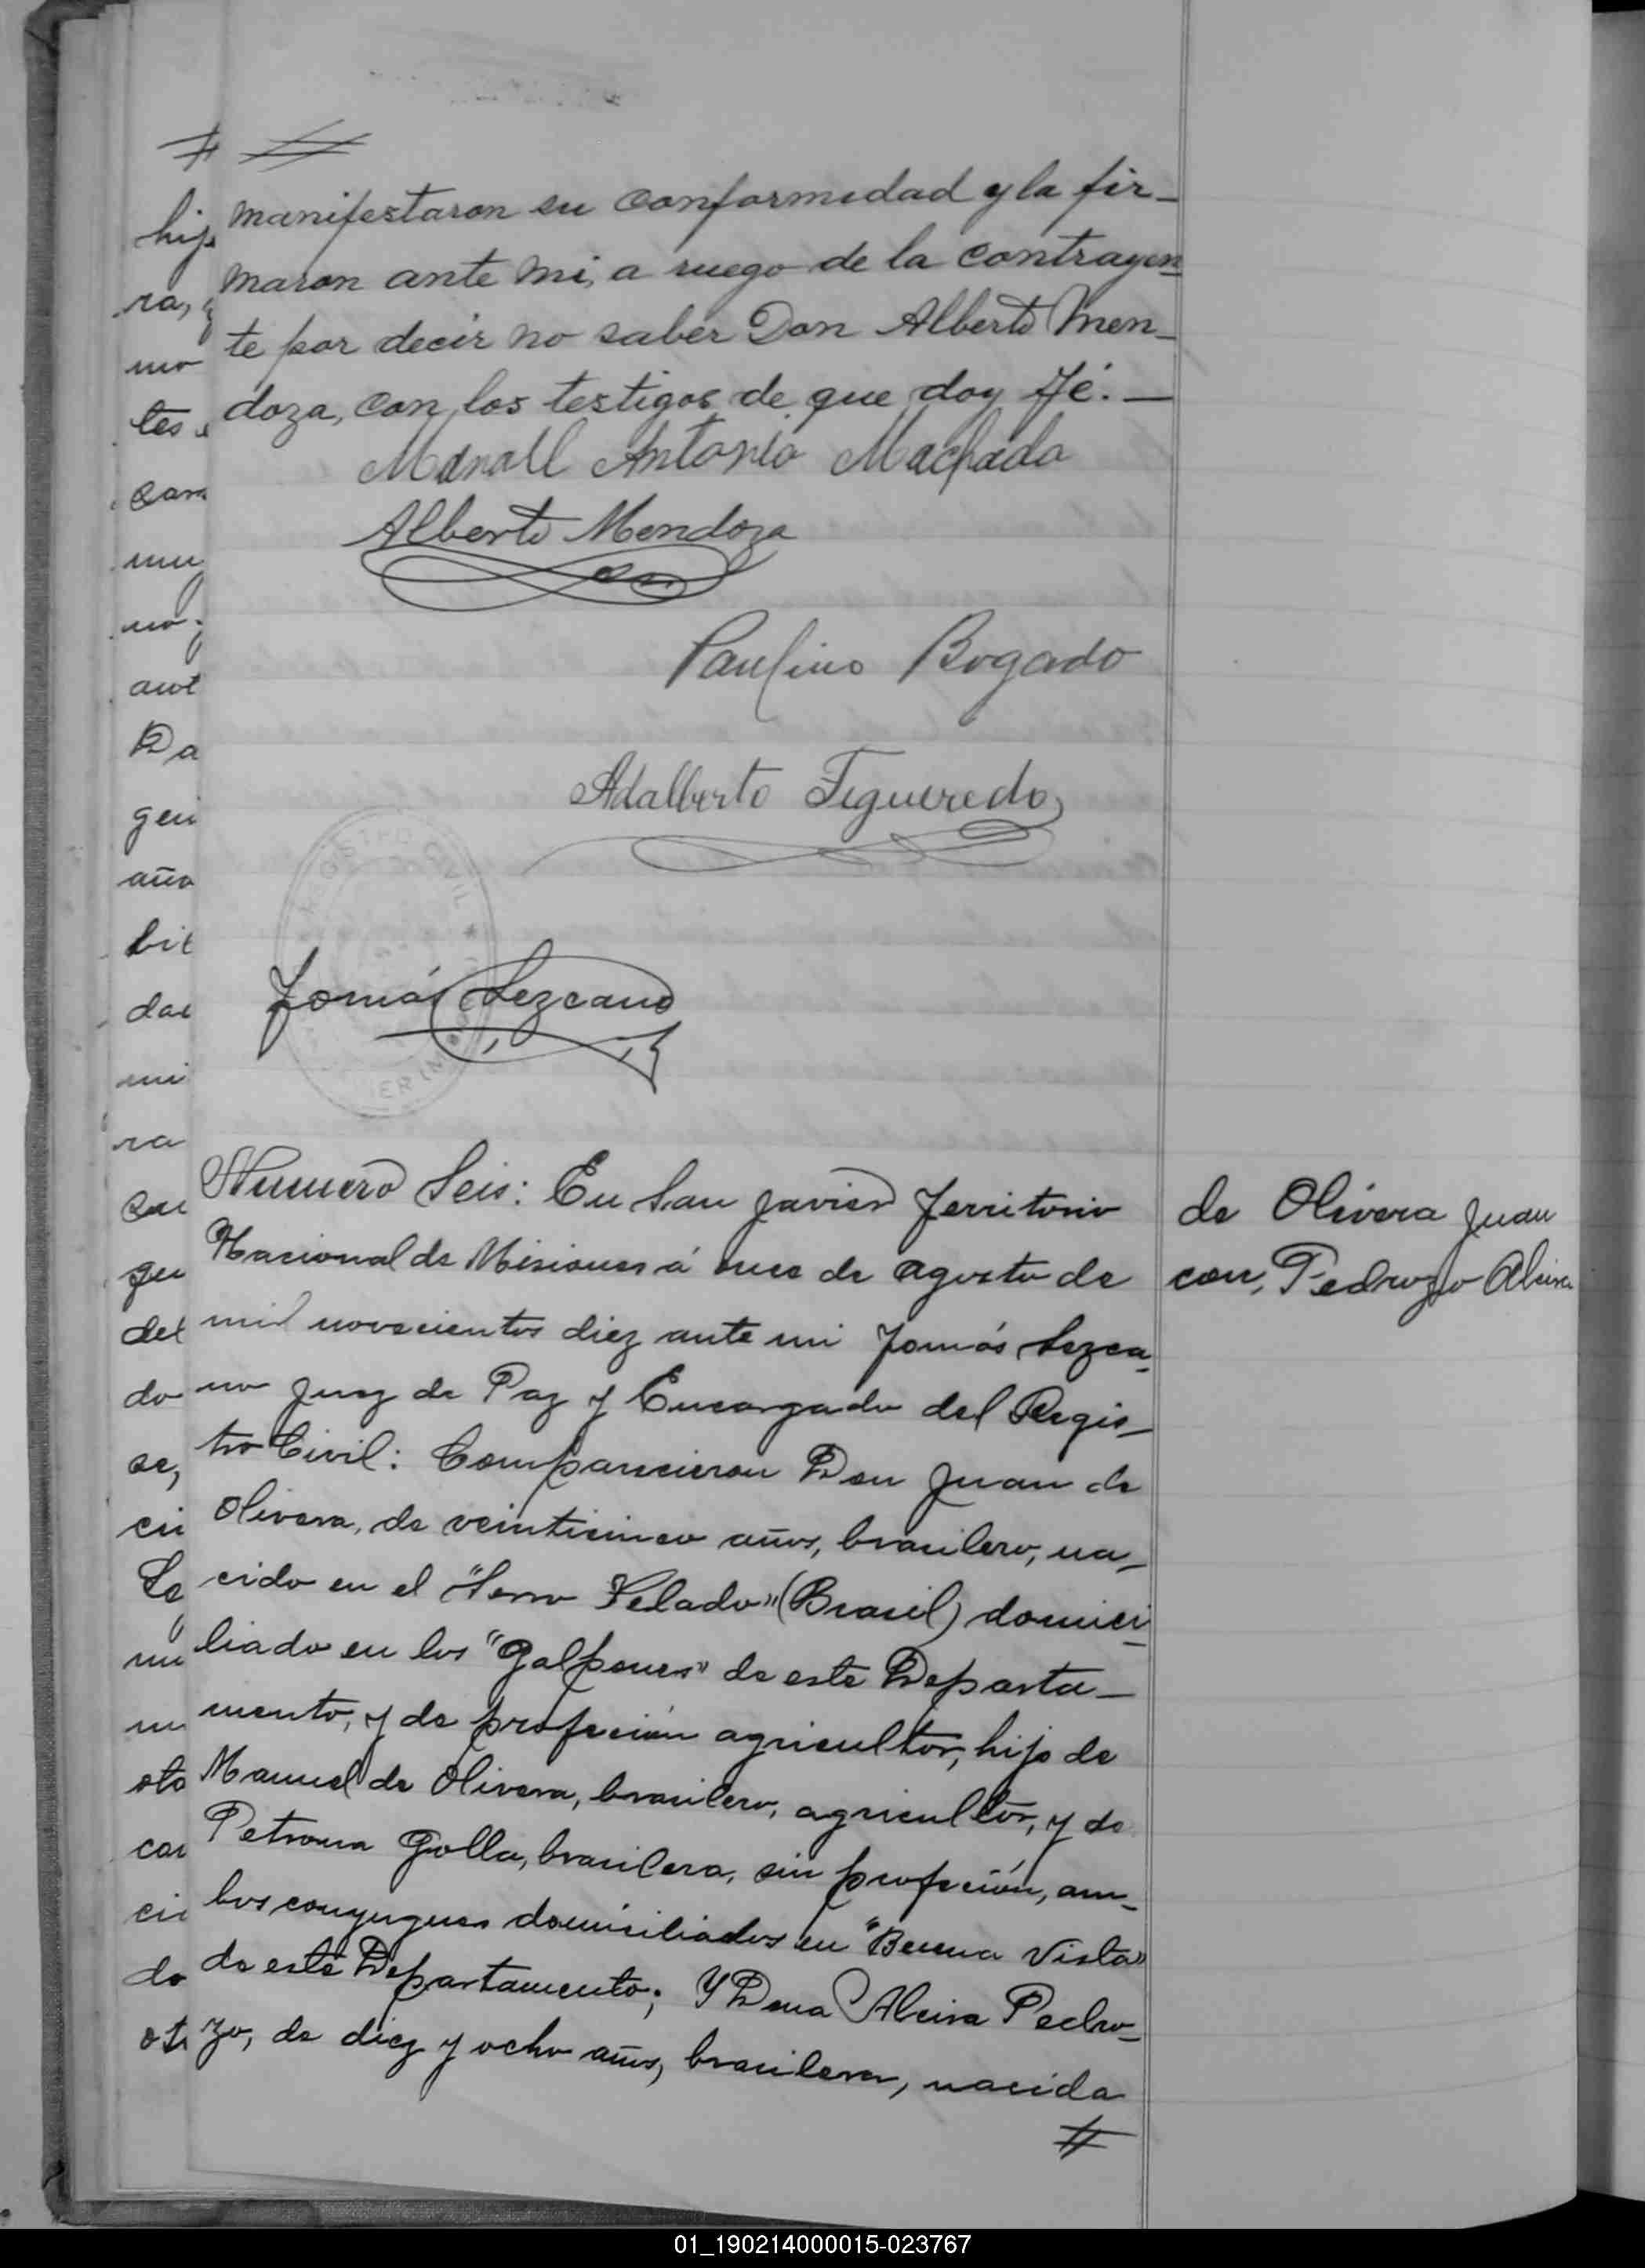 manifestaron su conformidad y la fir-
maron ante mi, a ruego de la contrayen-
te por decir no saber Don Alberto Men-
doza, con los testigos de que doy fé. —
Manoll Antonio Machado
Alberto Mendoza
Paulino Bogado
Adalberto Figueredo
REGISTRO CIVIL
Tomás Lezcano
Numero Seis: En San Javier Territorio
Nacional de Misiones á once de agosto de
mil novecientos diez ante mi Tomás Lezca-
no Juez de Paz y Encargado del Regis-
tro Civil: Comparecieron Don Juan de
Olivera, de veinticinco años, brasilero, na-
cido en el "Serro Pelado" (Brasil) domici-
liado en los "Galpones" de este Departa-
mento, y de profeción agricultor, hijo de
Manuel de Olivera, brasilero, agricultor, y de
Petrona Golla, brasilera, sin profeción, am-
bos conyugues domiciliados en "Buena Vista"
de este Departamento; Y Dona Alcira Pedro-
zo, de diez y ocho años, brasilera, nacida
#
de Olivera Juan
con, Pedrozo Alcira
hijo
ra,
mo
tes
can
muy
no
ant
Da
gen
año
bit
dae
mi
ra
que
del
do
se,
cii
Le
mu
oto
car
cii
do
ot
01_190214000015-023767